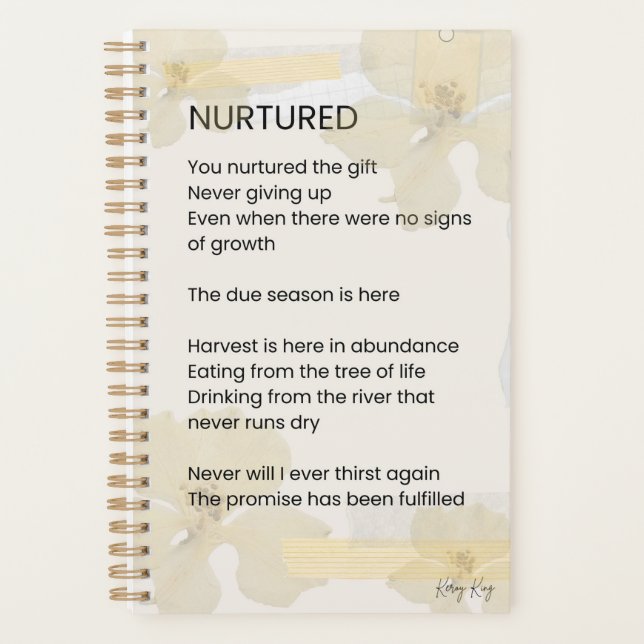 NURTURED
You nurtured the gift
Never giving up
Even when there were no signs
of growth
The due season is here
Harvest is here in abundance
Eating from the tree of life
Drinking from the river that
never runs dry
Never will I ever thirst again
The promise has been fulfilled
Keray King